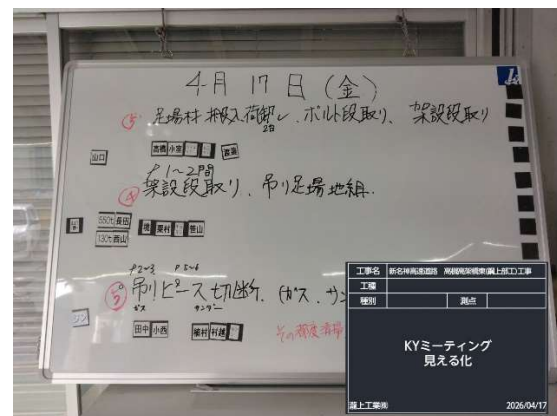 4月17日(金)
⑤ 足場材搬入荷卸し、ボルト段取り、架設段取り
2台
山口
高橋 小室
P1~2間
④ 架設段取り、吊り足場地組.
550t 長田
130t 西山
境 栗村 菅山
P2~3 P5~6
⑤ 吊りピース切断、(ガス、サン
ガス サンダー
田中 小西
植村 村越
その都度清掃
工事名 新名神高速道路 高槻高架橋東(鋼上部工)工事
工種
種別 測点
KYミーティング
見える化
瀧上工業㈱ 2026/04/17